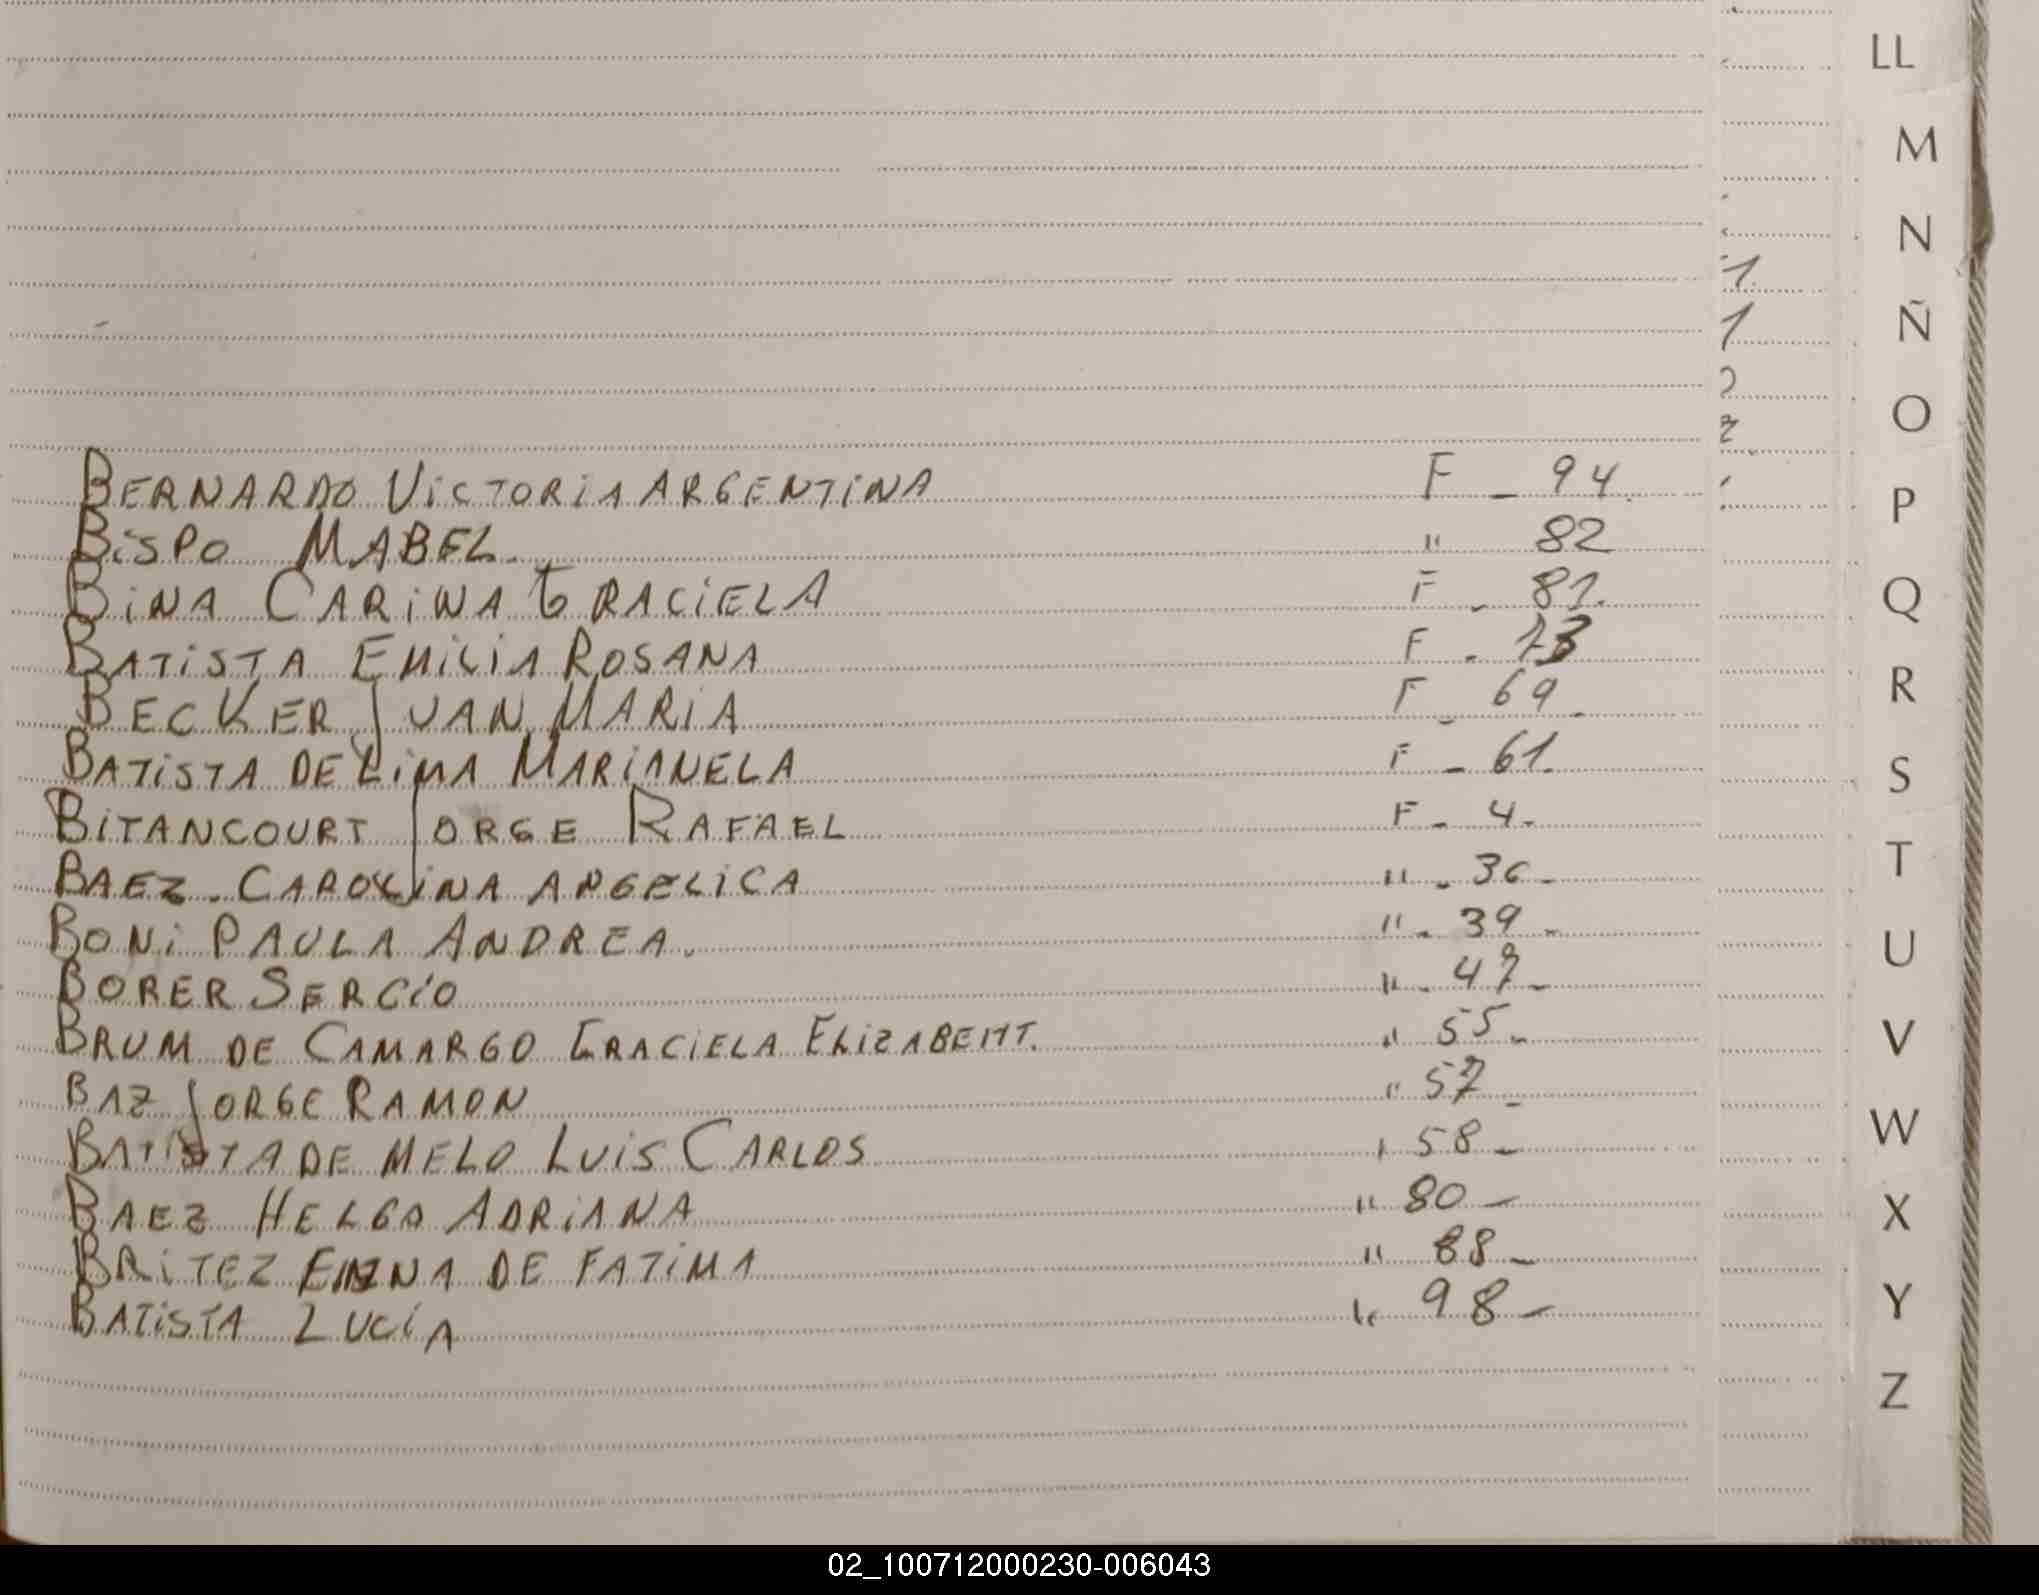 LL
M
N
Ñ
O
P
Q
R
S
T
U
V
W
X
Y
Z
BERNARDO VICTORIA ARGENTINA F - 94
BISPO MABEL. " 82
BINA CARINA GRACIELA F - 81.
BATISTA EMILIA ROSANA F - 73
BECKER JUAN MARIA F - 69 -
BATISTA DE LIMA MARIANELA F - 61.
BITANCOURT JORGE RAFAEL F - 4 -
BAEZ - CAROLINA ANGELICA " - 36 -
BONI PAULA ANDREA. " - 39 -
BORER SERGIO " - 47 -
BRUM DE CAMARGO GRACIELA ELIZABEHT. " 55 -
BAZ JORGE RAMON " 57 -
BATISTA DE MELO LUIS CARLOS " 58 -
BAEZ HELGA ADRIANA " 80 -
BRITEZ DE FATIMA " 88 -
BATISTA LUCÍA " 98 -
02_100712000230-006043